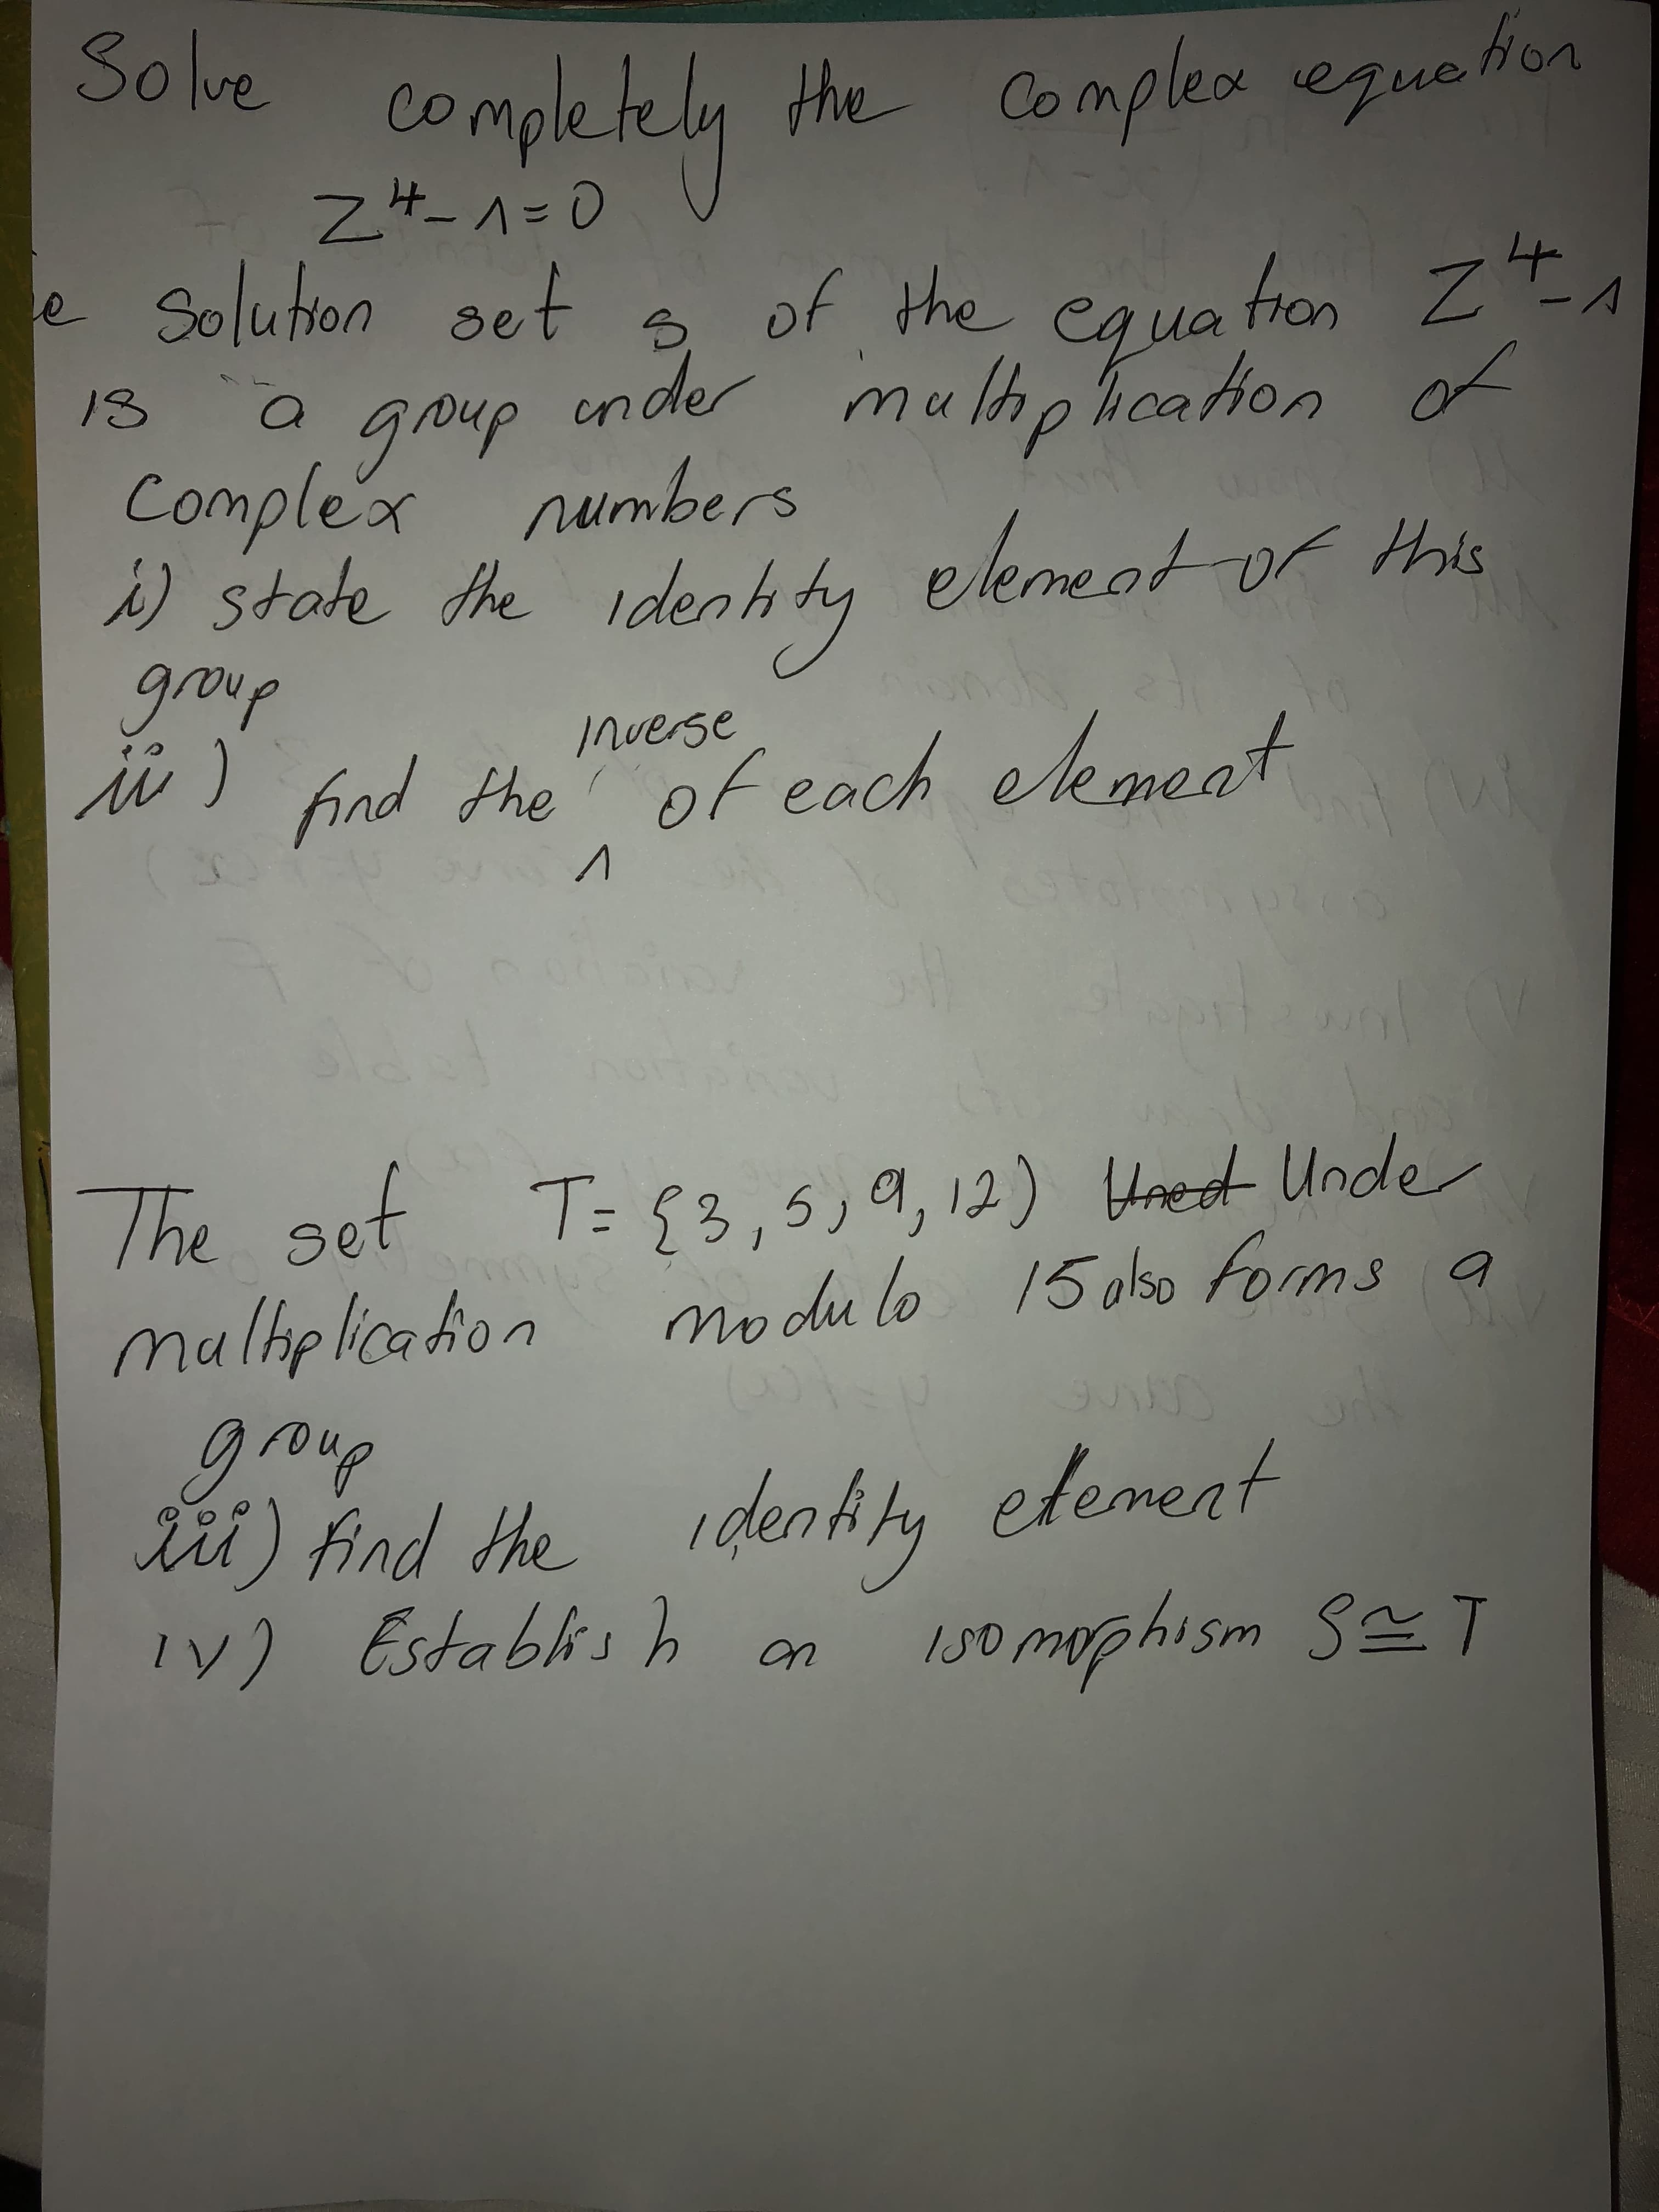 Solve completely the complex equation
Z⁴-1=0
e solution set s of the equation Z⁴-1
is a group under multiplication of
complex numbers
i) state the identity element of this
group
inverse
ii) find the ^ of each element
The set T={3, 5, 9, 12) Uned Under
multiplication modulo 15 also forms a
group
iii) find the identity element
iv) Establish an isomorphism S≅T